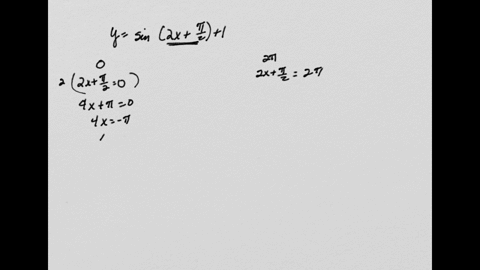 y = sin (2x + π/2) + 1
0
2 (2x + π/2 = 0)
4x + π = 0
4x = -π
2π
2x + π/2 = 2π